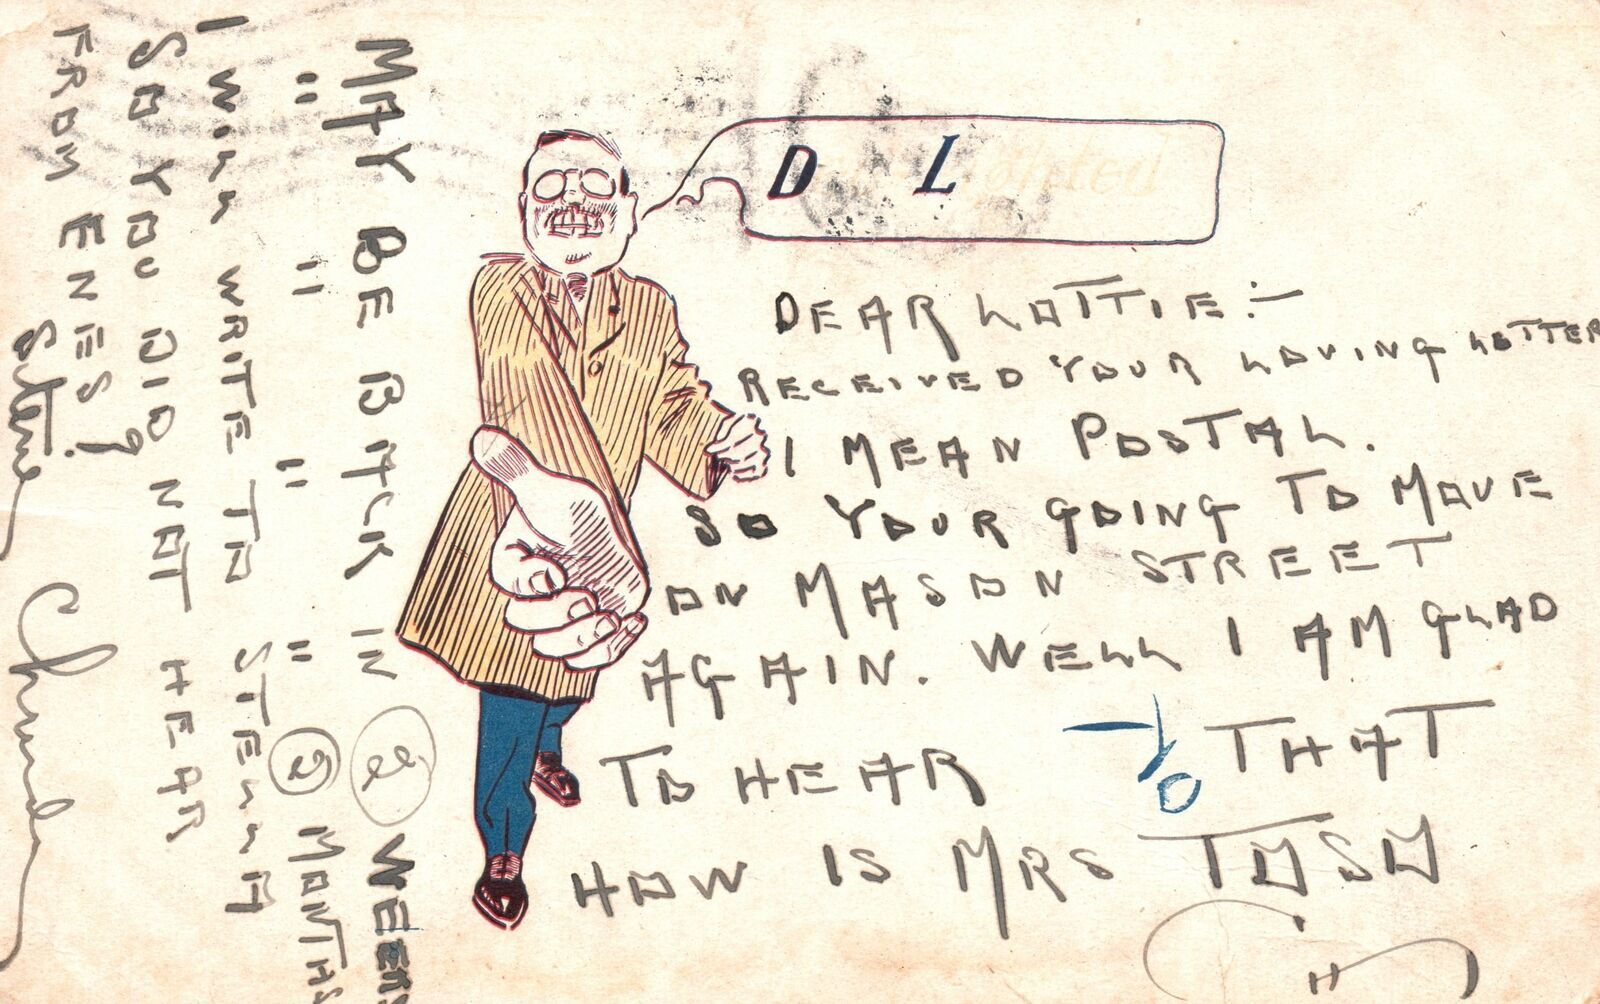 D L
DEAR LOTTIE:—
RECEIVED YOUR LOVING LETTER
I MEAN POSTAL.
SO YOUR GOING TO MOVE
ON MASON STREET
AGAIN. WELL I AM GLAD
TO HEAR THAT
HOW IS MRS TOSO
MAY BE BACK IN 2 WEEKS
" " " " 2 MONTHS
I WILL WRITE TO STELLA
SO YOU DID NOT HEAR
FROM ENES?